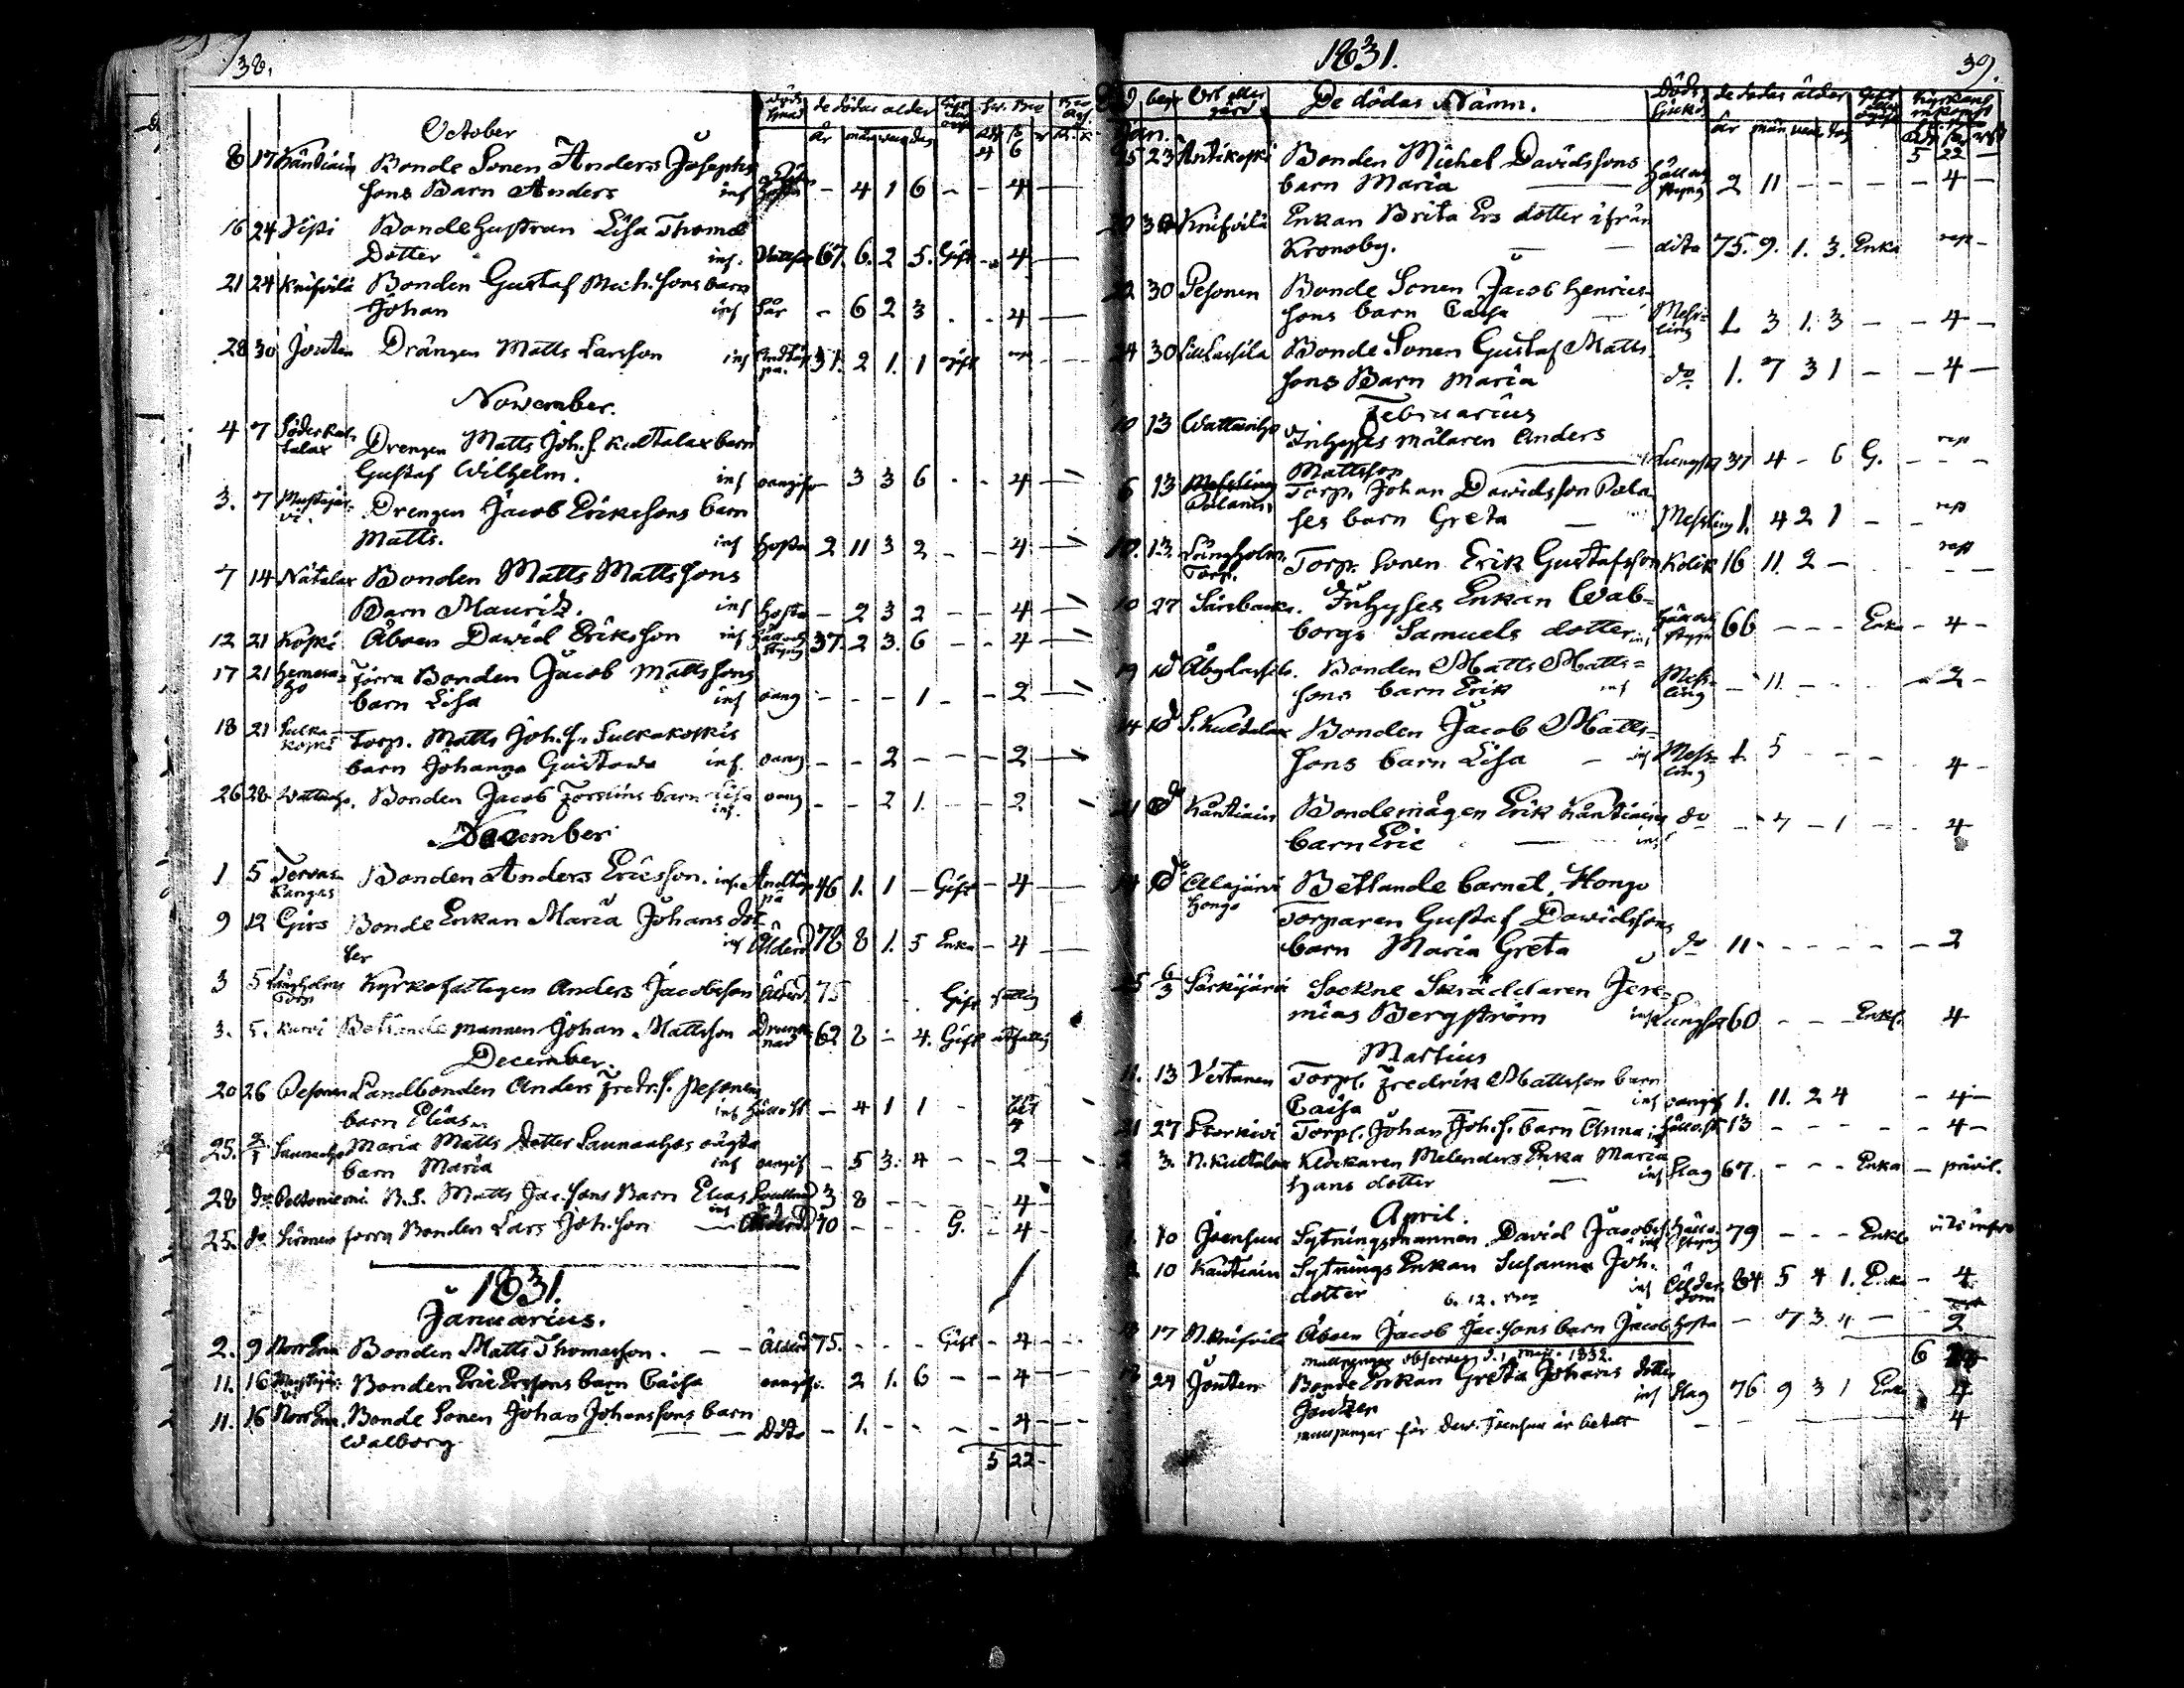 38.
döds orsak de dödas ålder
år mån veck dag
October
4 6
8 17 Käntiäin Bonde Sonen Anders Josephs
sons Barn Anders inf hosta - 4 1 6 - - 4 -
16 24 Bonde hustrun Lisa Thomæ
Dotter inf. 67. 6. 2 5. Gift - 4 -
21 24 Knifvilä Bonden Gustaf Mich. sons barn
Johan inf Sår - 6 2 3 . - 4 -
28 30 Jouten Drängen Matts Larsson inf Andtäp
pa. 31. 2 1. 1 gift
November.
4 7 Söder Kul
talax Drengen Matts Joh. s. Kultalax barn
Gustaf Wilhelm. inf oangif - 3 3 6 - - 4 -
3. 7 Mustajär-
vi. Drengen Jacob Ericksons barn
Matts. inf hosta 2 11 3 2 - - 4 -
7 14 Nätalax Bonden Matts Matts sons
Barn Mauritz. inf hosta - 2 3 2 - - 4 -
12 21 Koski Åboen Dawid Eriksson inf Håll och
styng 37. 2 3. 6 - - 4 -
17 21 förra Bonden Jacob Mattssons
barn Lisa inf oang - - - 1 - - 2 -
18 21 Sulka-
koski Torp. Matts Joh. s. Sulkakoskis
barn Johanna Gustawa inf. oang - - 2 - - - 2 -
26 28 Bonden Jacob Forsséns barn Lisa oang - - 2 1. - - 2 -
inf.
December
1 5 Tervas-
kangas Bonden Anders Ericsson. inf. Andtäp
pa 46 1. 1 - Gift - 4 -
9 12 Girs Bonde Enkan Maria Johans dot
ter inf Ålderd 78 8 1. 5 Enka - 4 -
3 5 Långholms
Torp Kyrkofattigen Anders Jacobsson Ålderd. 75 Gift fattig
3. 5. Kurvi Betlande mannen Johan Mattsson Drunk
nad 62 8 - 4. Gift utfattig
December.
20 26 Pesonen Landbonden Anders Fredr. s. Pesonens
barn Elias inf Håll o st - 4 1 1 - 4
25. 2/1 Saunaaho Maria Matts dotter Saunaahos oägta
barn Maria inf oangif - 5 3. 4 - - 2 -
28 do Peltoniemi B. S. Matts Jac. sons Barn Elias 3 8 - - - - 4 -
inf
25. do Sirenes forra Bonden Lars Joh. son — Ålderd 70 - - - G. - 4 -
1831.
Januarius.
2. 9 Bonden Matts Thomasson. - - Ålderd 75. - - - Gift - 4 -
11. 16 Mustajär-
vi Bonden Eric Erssons barn Caisa oangif. - 2 1. 6 - - 4 -
11. 16 Bonde Sonen Johan Johanssons barn
Walborg — — — Dito - 1. - - - - 4 -
5 22 -
1831. 39.
begr Ort eller
gård De dödas Namn. Döds
siukd. de dödas ålder Kyrkans
inkomst
år mån veck dag
Jan. 5 22 -
25 23 Antikoski Bonden Michel Davidssons
barn Maria — Håll och
styng 2 11 - - - - 4 -
30 Knifvilä Enkan Brita Ers dotter ifrån
Kronoby. — — dito 75. 9. 1. 3. Enka rest -
22 30 Pesonen Bonde Sonen Jacob Henrics-
sons barn Caisa — Mess-
ling 1. 3 1. 3 - - 4 -
24 30 Lill Lassila Bonde Sonen Gustaf Matts
sons Barn Maria do 1. 7 3 1 - - 4 -
Februarius
10 13 Inhyses målaren Anders
Mattsson — Lungsot 37 4 - 6 G. - rest
6 13 Torp. Johan Dawidsson Pala
ses barn Greta — Messling 1. 4 2 1 - - rest
10. 13. Långholm.
Torp. Torp. Sonen Erik Gustafsson Kolik 16 11. 2 - - - rest
10 27 Inhyses Enkan Wal-
borgs Samuels dotter inf Håll och
styng 66 - - - Enka - 4 -
19 do Åby Lassila. Bonden Matts Matts=
sons barn Erik inf Mess-
ling - 11. - - - - 2 -
14 do S. Kultalax Bonden Jacob Matts-
sons barn Lisa — inf Mess-
ling 1. 5 - - - 4 -
21 do Käntiäin Bondemågen Erik Käntiäins
barn Eric — inf do - 7 - 1 - - 4
14 do Alajärvi
Hongo Betlande barnet, Hongo
Torparen Gustaf Dawidssons
barn Maria Greta do 11 - - - - - 2
25 6/3 Särkijärvi Sockne Skräddaren Jere-
mias Bergström inf Lungsot 60 - - - Enkl. 4
Martius
11. 13 Vertanen Torp. Fredrik Mattsson barn
Caisa — — inf oangif 1. 11. 2 4 - 4 -
21 27 Storkivi Torp. Johan Joh. s. barn Anna inf Håll o. st 13 - - - - - 4 -
3. N. Kultalax Klockaren Melenders Enka Maria
Hans dotter — inf Slag 67. - - - Enka - privil.
April.
10 Joensuu Sytningsmannen David Jacobss. Håll o
inf styng 79 - - - Enkl.
10 Käntiäin Sytnings Enkan Susanna Joh.
dotter inf Ålder-
dom 84 5 4 1. Enka - 4
17 N. Knifvilä Åboen Jacob Jac. sons barn Jacob hosta - 7 3. 4 - 2
6
24 Jouten Bonde Enkan Greta Johans dotter
Joutzen inf Slag 76 9 3 1 Enka 4
för Dav. Joensuu är betalt - - - 4